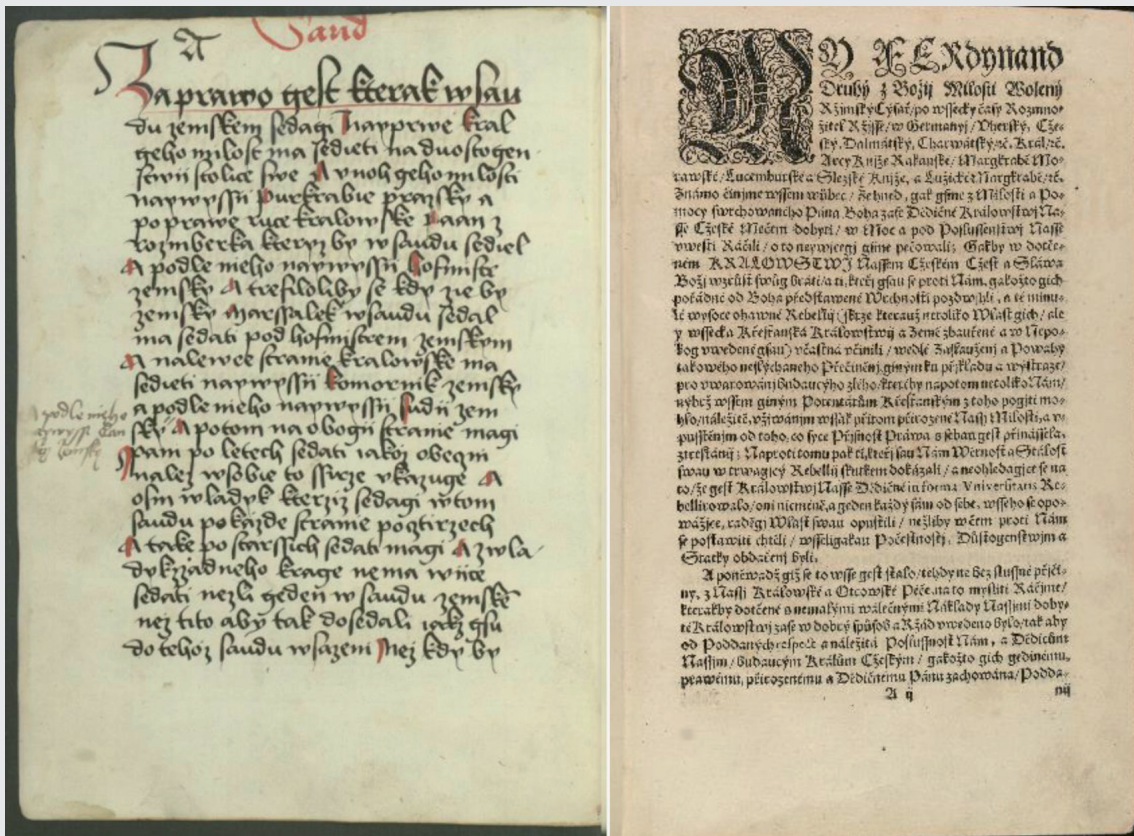 A
Saud
Zaprawo gest kterak w sau
du zemskem sedagi Nayprwe kral
geho milost ma sedieti na duostogen
stwii stolice swe A v noh geho milosti
naywyssii Purkrabie prazsky a
po prawe ruce kralowske Paan z
rozmberka kteryz by w saudu sediel
A podle nieho naywyssii hofmistr
zemsky A trefiloliby se kdy zie by
zemsky Marssalek w saudu sedal
ma sedati pod hofmistrem zemskym
A nalewee stranie kralowske ma
sedieti naywyssii komornik zemsky
a podle nieho naywyssii sudii zem
sky A potom na obogii stranie magi
pani po letech sedati iakoz obecni
nalez w sobie to ssirze vkazuge A
osm wladyk kterziz sedagi w tom
saudu po kazde stranie po cztirzech
A take po starssich sedati magi A z wla
dyk zadneho krage nema wiice
sedati nezla geden w saudu zemske
nez tito aby tak dosedali iakz gsu
do tehoz saudu wsazeni Nez kdy by
a podle nieho
MY FERdynand
Druhý z Božij Milosti Wolený
Ržimský Cýsař/ po wssecky časy Rozmno-
žitel Ržijsse/ w Germanyj/ Vherský, Cže-
ský, Dalmátský, Charwátský/ rč. Král/ rč.
Arcy Kniže Rakauské/ Margkrabě Mo-
rawské/ Lucemburské a Slezské Kniže, a Lužické Margkrabě/ rč.
Známo činjme wssem wůbec/ Že hned, gak gsme z Milosti a Po-
mocy swrchowaného Pána Boha zase Dědičné Králowstwj Na-
sse Cžeské Mečem dobyti/ w Moc a pod Poslussenstwj Nasse
vwesti Ráčili/ o to neywjcegj gsme pečowali; Gakby w dotče-
ném KRALOWSTWJ Nassem Cžeském Cžest a Sláwa
Božj wzrůst swůg bráti/ a ti, kteřj gsau se proti Nám, gakožto gich
pořádné od Boha představené Wrchnosti pozdwihli, a té minu-
lé wysoce ohawné Rebellij (skrze kterauž netoliko Wlast gich/ ale
y wssecka Křesťanská Králowstwij a Země zbauřené a w Nepo-
kog vwedené gsau) včastna včinili/ wedlé Zaslaužení a Powahy
takowého neslýchaného Přečiněnj giným ku přjkladu a weystraze/
pro vwarowánj budaucýho zlého/ kteréby napotom netoliko Nám/
nýbrž wssem giným Potentátům Křesťanským z toho pogjti mo-
hlo/ náležitě, vžjwánjm wssak přitom přirozené Nassj Milosti, a w-
pusstěnjm od toho, co syce Přjsnost Práwa s sebau gest přinássela,
ztrestáni; Naproti tomu pak ti, kteřj sau Nám Wěrnost a Stálost
swau w trwagjcý Rebellij skutkem dokázali/ a neohledagjce se na
to/ že gest Králowstwj Nasse Dědičné in forma Vniversitatis Re-
bellirowalo/ oni nicméně, a geden každý sám od sebe, wsseho se opo-
wážjce, raděgi Wlast swau opustili/ nežliby w čem proti Nám
se postawiti chtěli/ wsseligakau Počestnostj, Důstogenstwjm a
Statky obdařenj byli.
A poněwadž giž se to wsse gest stalo/ tehdy ne bez slussné přjči-
ny, z Nassj Králowské a Otcowské Péče na to mysliti Ráčjme/
kterakby dotčené s nemalými wálečnými Náklady Nassjmi doby-
té Králowstwj zase w dobrý spůsob a Ržád vwedeno bylo/ tak aby
od Poddaných respect a náležitá Poslussnost Nám, a Dědicům
Nassjm/ budaucým Králům Cžeským/ gakožto gich gedinému,
prawému, přirozenému a Dědičnému Pánu zachowána/ Podda-
A ij
nij